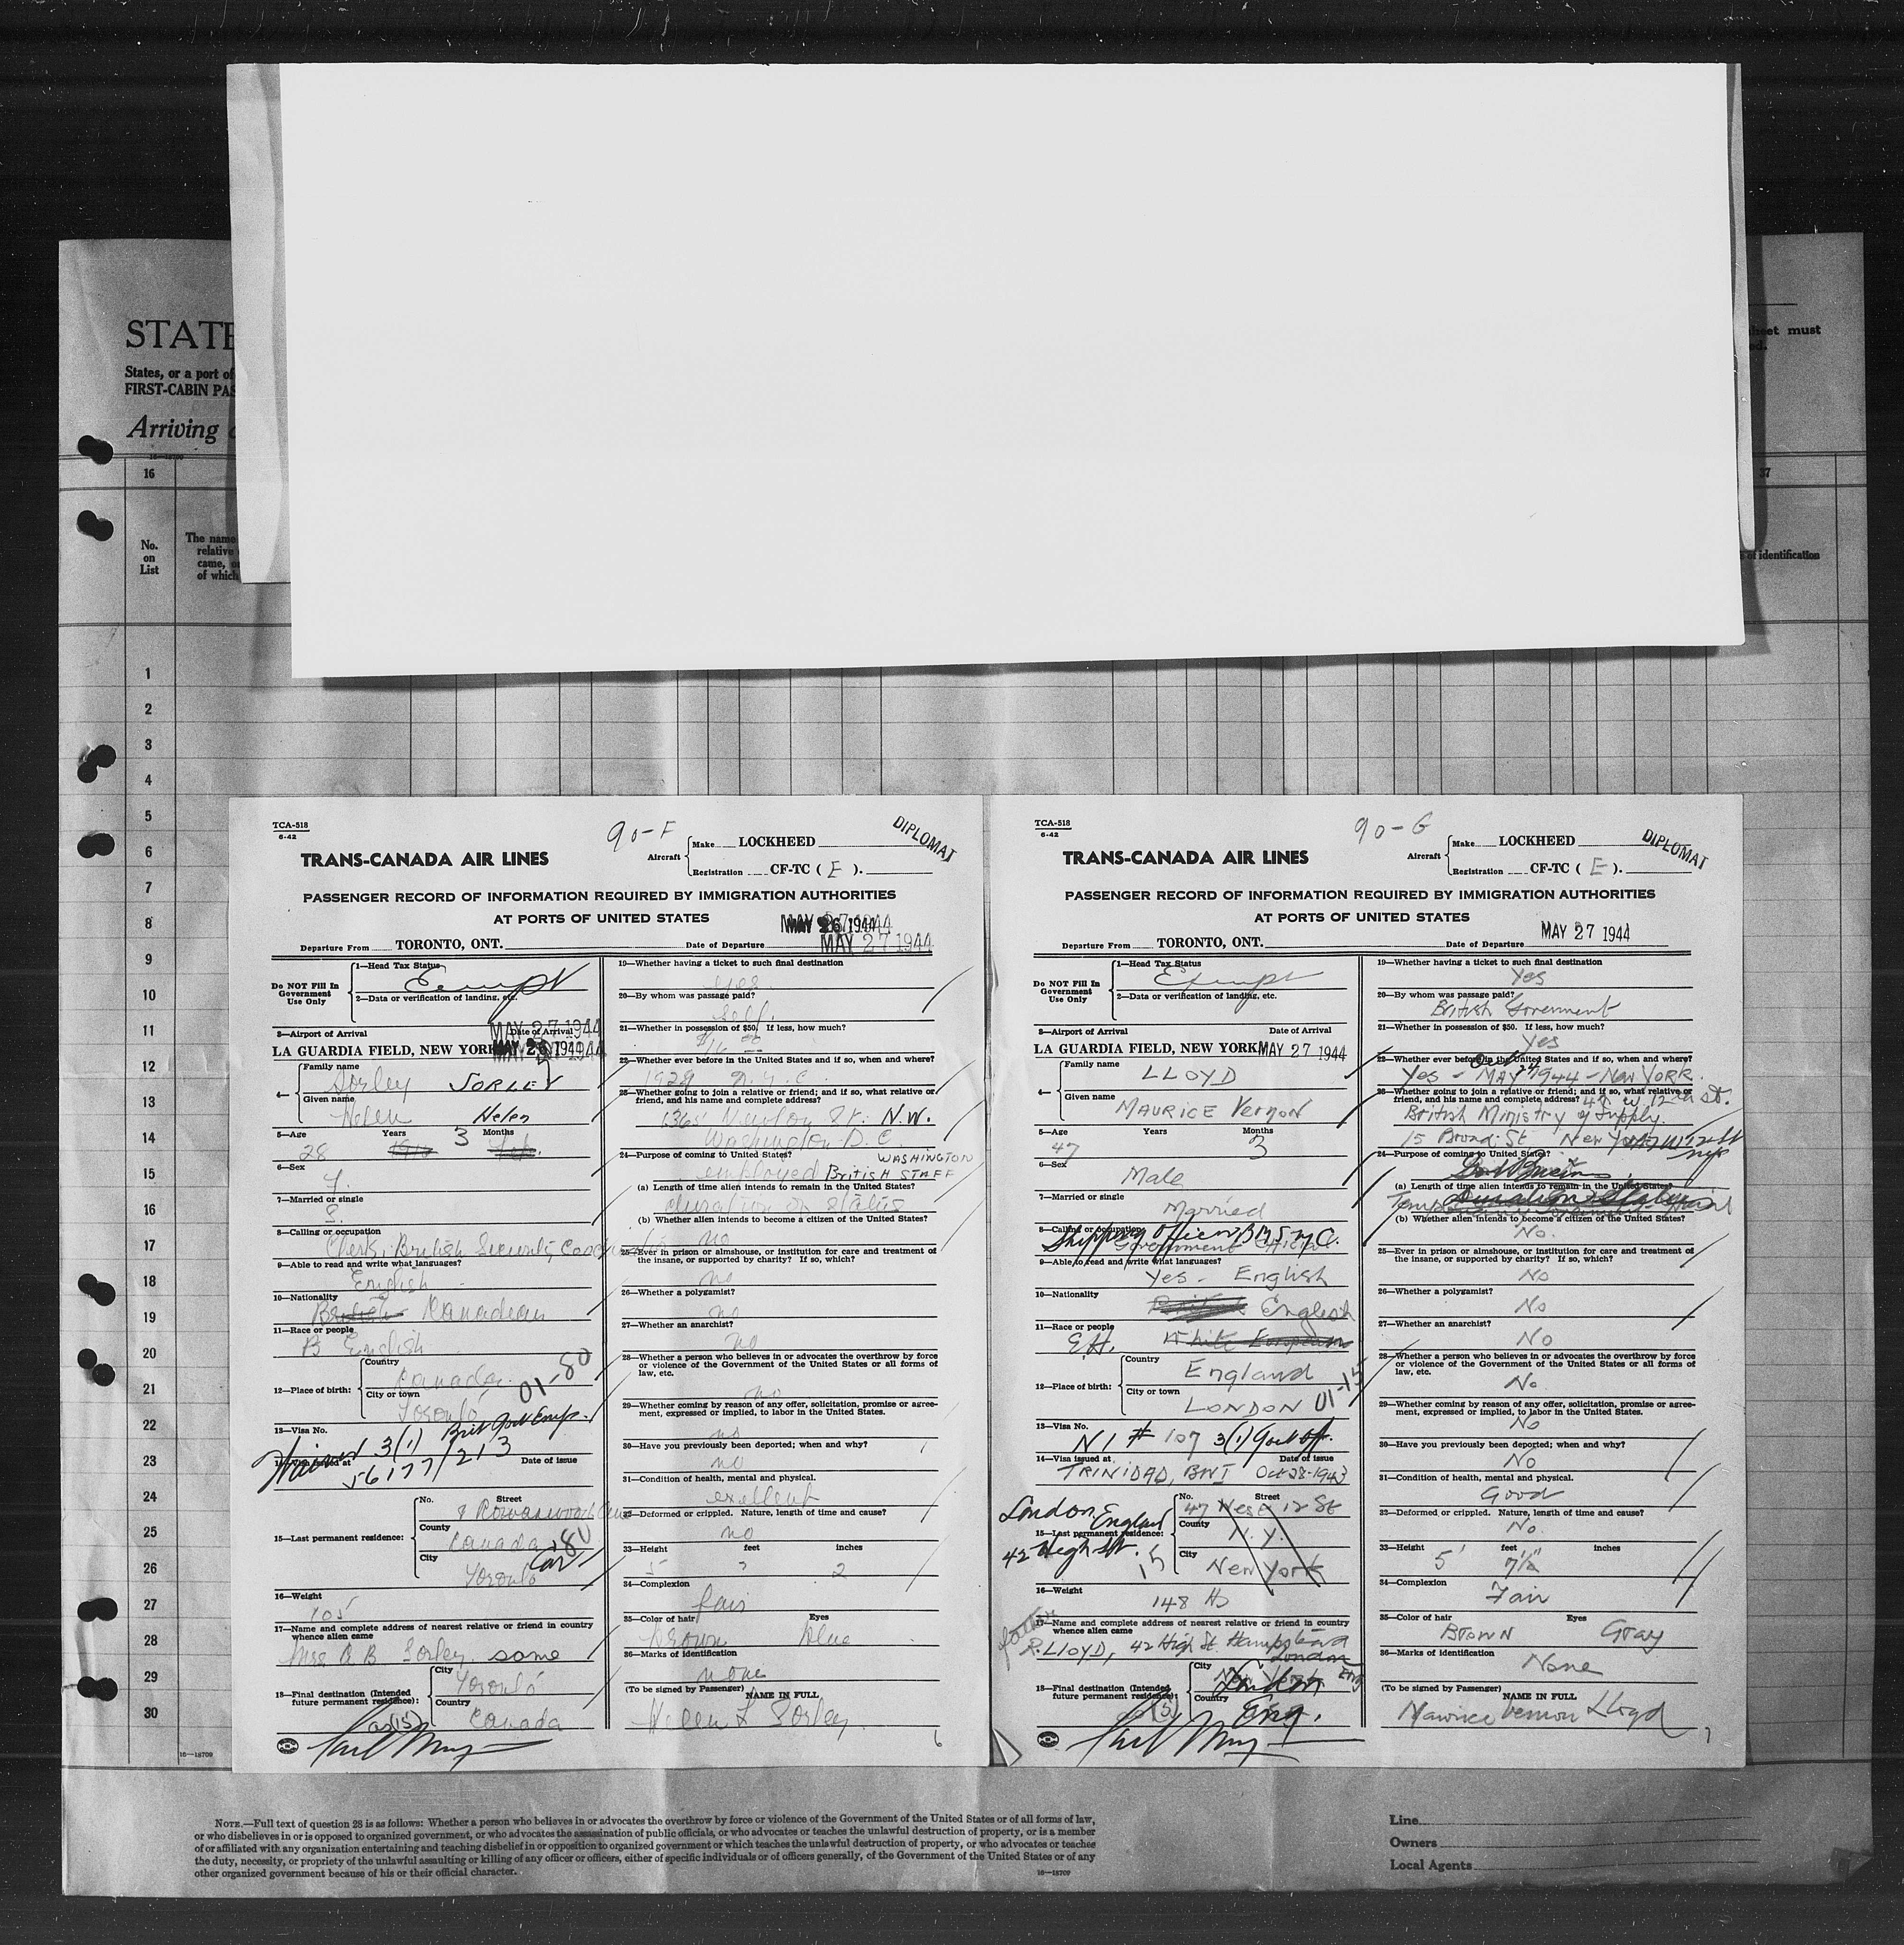 STATE
States, or a port of
FIRST-CABIN PAS
Arriving
sheet must
16
37
No.
on
List
The name
relative
came, o
of which
of identification
1
2
3
4
5
6
7
8
9
10
11
12
13
14
15
16
17
18
19
20
21
22
23
24
25
26
27
28
29
30
16—18709
TCA-518
6-42
90-F
DIPLOMAT
Aircraft
Make LOCKHEED
Registration CF-TC ( E ).
TRANS-CANADA AIR LINES
PASSENGER RECORD OF INFORMATION REQUIRED BY IMMIGRATION AUTHORITIES
AT PORTS OF UNITED STATES
MAY 27 1944
Departure From TORONTO, ONT. Date of Departure MAY 27 1944
Do NOT Fill In
Government
Use Only
1—Head Tax Status
Exempt
2—Data or verification of landing, etc.
3—Airport of Arrival Date of Arrival
MAY 27 1944
LA GUARDIA FIELD, NEW YORK MAY 26 1944
4—
Family name
Sorley SORLEY
Given name
Helen Helen
5—Age Years Months
28 3
6—Sex
F.
7—Married or single
S.
8—Calling or occupation
Clerk, British Security
9—Able to read and write what languages?
English
10—Nationality
British Canadian
11—Race or people
B English
12—Place of birth:
Country
Canada
City or town
Toronto
01-80
13—Visa No.
Waived 3(1) Brit Govt Emp.
56177/213
14—Visa issued at Date of issue
15—Last permanent residence:
No. Street
8 Rowanwood Ave
County
Canada
City
Toronto
Can 80
16—Weight
105
17—Name and complete address of nearest relative or friend in country
whence alien came
B Sorley same
18—Final destination (Intended
future permanent residence):
City
Toronto
Country
Canada
19—Whether having a ticket to such final destination
yes
20—By whom was passage paid?
self.
21—Whether in possession of $50. If less, how much?
22—Whether ever before in the United States and if so, when and where?
1929 N.Y.C.
23—Whether going to join a relative or friend; and if so, what relative or
friend, and his name and complete address?
1365 Newton St. N.W.
Washington D.C.
24—Purpose of coming to United States? WASHINGTON
employed BRITISH STAFF
(a) Length of time alien intends to remain in the United States?
duration of status
(b) Whether alien intends to become a citizen of the United States?
no
25—Ever in prison or almshouse, or institution for care and treatment of
the insane, or supported by charity? If so, which?
no
26—Whether a polygamist?
no
27—Whether an anarchist?
no
28—Whether a person who believes in or advocates the overthrow by force
or violence of the Government of the United States or all forms of
law, etc.
no
29—Whether coming by reason of any offer, solicitation, promise or agree-
ment, expressed or implied, to labor in the United States.
no
30—Have you previously been deported; when and why?
no
31—Condition of health, mental and physical.
excellent
32—Deformed or crippled. Nature, length of time and cause?
no
33—Height feet inches
5 2
34—Complexion
fair
35—Color of hair Eyes
brown blue
36—Marks of identification
none
(To be signed by Passenger) NAME IN FULL
Helen L Sorley
6
TCA-518
6-42
90-G
DIPLOMAT
Aircraft
Make LOCKHEED
Registration CF-TC ( E ).
TRANS-CANADA AIR LINES
PASSENGER RECORD OF INFORMATION REQUIRED BY IMMIGRATION AUTHORITIES
AT PORTS OF UNITED STATES
Departure From TORONTO, ONT. Date of Departure MAY 27 1944
Do NOT Fill In
Government
Use Only
1—Head Tax Status
Exempt
2—Data or verification of landing, etc.
3—Airport of Arrival Date of Arrival
LA GUARDIA FIELD, NEW YORK MAY 27 1944
4—
Family name
LLOYD
Given name
MAURICE Vernon
5—Age Years Months
47 3
6—Sex
Male
7—Married or single
Married
8—Calling or occupation
Shipping Officer B.M.S. N.Y.C.
Government Officer
9—Able to read and write what languages?
Yes - English
10—Nationality
British English
11—Race or people
E.H. White European
12—Place of birth:
Country
England
City or town
LONDON 01-15
13—Visa No.
N1 # 107 3(1) Govt Off.
14—Visa issued at Date of issue
TRINIDAD, BWI Oct-28-1943
London, England
42 High St.
15
15—Last permanent residence:
No. Street
47 West 12 St
County
N.Y.
City
New York
16—Weight
148 lb
17—Name and complete address of nearest relative or friend in country
whence alien came
father
R. LLOYD, 42 High St. Hampstead
London Eng
18—Final destination (Intended
future permanent residence):
City
London
Country
Eng.
19—Whether having a ticket to such final destination
Yes
20—By whom was passage paid?
British Government
21—Whether in possession of $50. If less, how much?
Yes
22—Whether ever before in the United States and if so, when and where?
Yes - MAY 24 1944 - New YORK.
23—Whether going to join a relative or friend; and if so, what relative or
friend, and his name and complete address? 47 W 12th St.
British Ministry of Supply.
15 Broad St New York
24—Purpose of coming to United States?
(a) Length of time alien intends to remain in the United States?
Duration of Status
(b) Whether alien intends to become a citizen of the United States?
No.
25—Ever in prison or almshouse, or institution for care and treatment of
the insane, or supported by charity? If so, which?
No
26—Whether a polygamist?
No
27—Whether an anarchist?
No
28—Whether a person who believes in or advocates the overthrow by force
or violence of the Government of the United States or all forms of
law, etc.
No
29—Whether coming by reason of any offer, solicitation, promise or agree-
ment, expressed or implied, to labor in the United States.
No
30—Have you previously been deported; when and why?
No
31—Condition of health, mental and physical.
Good
32—Deformed or crippled. Nature, length of time and cause?
No.
33—Height feet inches
5' 7½"
34—Complexion
Fair
35—Color of hair Eyes
BROWN Gray
36—Marks of identification
None
(To be signed by Passenger) NAME IN FULL
Maurice Vernon Lloyd
7
NOTE.—Full text of question 28 is as follows: Whether a person who believes in or advocates the overthrow by force or violence of the Government of the United States or of all forms of law,
or who disbelieves in or is opposed to organized government, or who advocates the assassination of public officials, or who advocates or teaches the unlawful destruction of property, or is a member
of or affiliated with any organization entertaining and teaching disbelief in or opposition to organized government or which teaches the unlawful destruction of property, or who advocates or teaches
the duty, necessity, or propriety of the unlawful assaulting or killing of any officer or officers, either of specific individuals or of officers generally, of the Government of the United States or of any
other organized government because of his or their official character.
16—18709
Line
Owners
Local Agents